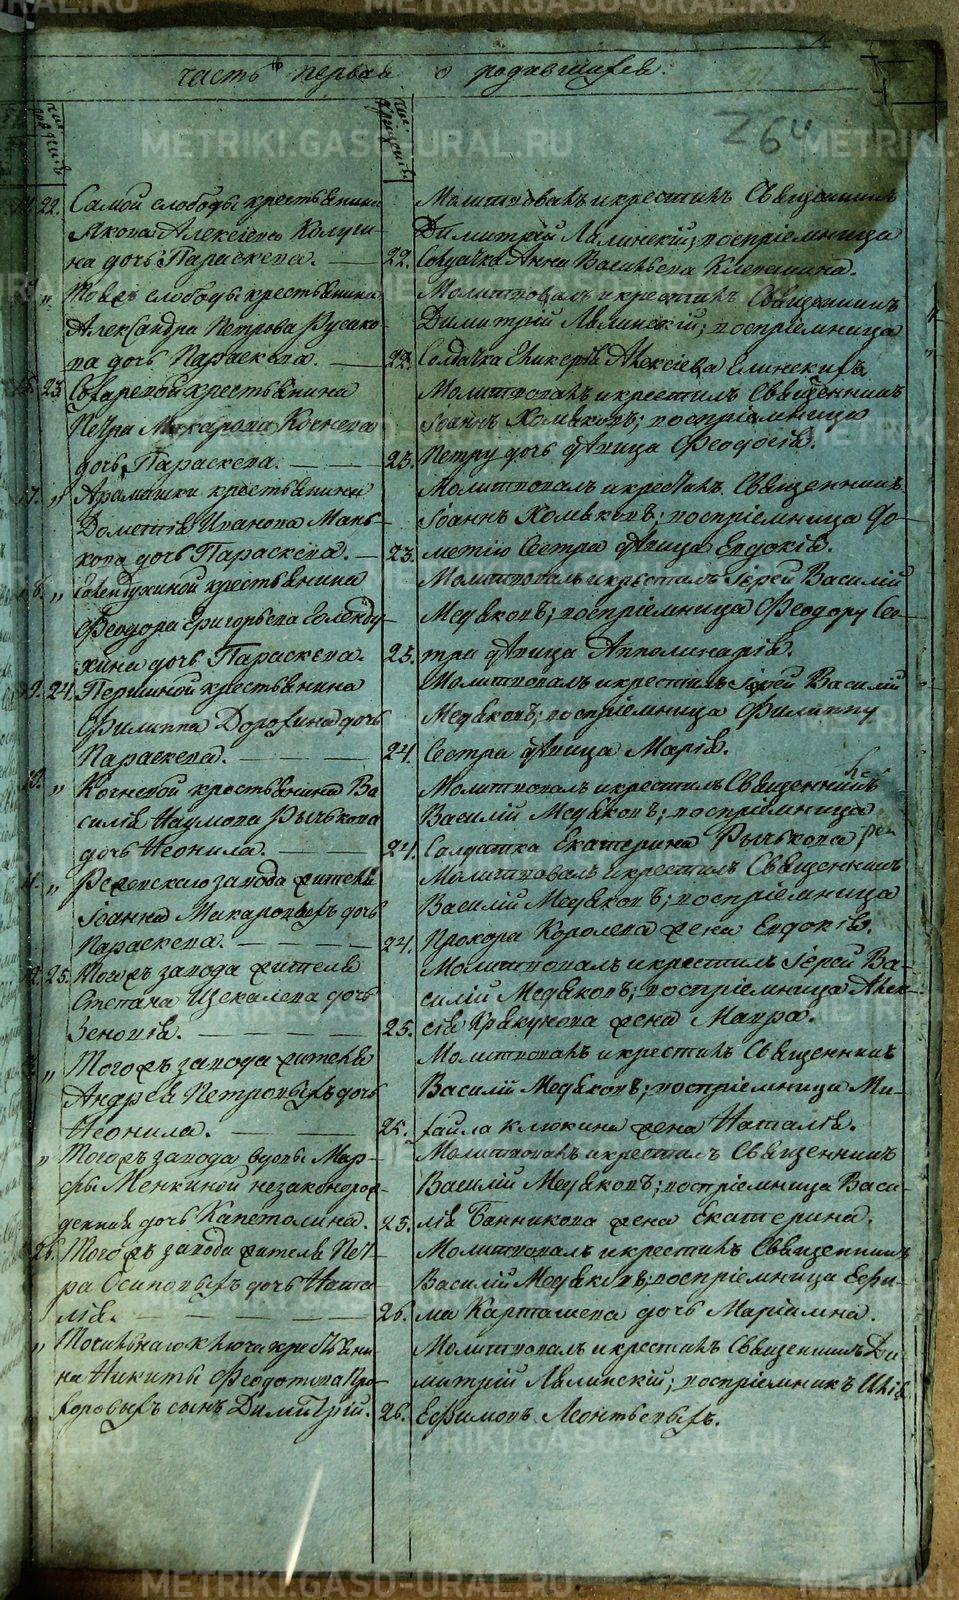 часть первая о родившихся.
264
22. Самой слободы крестьянина
Якова Алексіева Калуги-
на дочь Параскева.
Молитвовалъ и крестилъ Священникъ
Димитрій Лялинскій; воспріемница
22. Солдатка Анна Васильева Клепинина.
„ Тоежъ слободы крестьянина
Александра Петрова Русако-
ва дочь Параскева.
Молитвовалъ и крестилъ Священникъ
Димитрій Лялинскій; воспріемница
22. Солдатка Гликерія Алексіева
23. крестьянина
Петра Макарова Кочнева
дочь Параскева.
Молитвовалъ и крестилъ Священникъ
Іоаннъ Хомяковъ; воспріемница
23. Петру дочь дѣвица Феодосія.
17. „ Арамашки крестьянина
Дометія Иванова Мань-
кова дочь Параскева.
Молитвовалъ и крестилъ Священникъ
Іоаннъ Хомяковъ; воспріемница До-
23. метію Сестра дѣвица Евдокія.
„ Голендухиной крестьянина
Феодора Григорьева Голенду-
хина дочь Параскева.
Молитвовалъ и крестилъ Іерей Василій
Медяковъ; воспріемница Феодору Сес-
23. тра дѣвица Апполинарія.
24. Першиной крестьянина
Филиппа Дорохина дочь
Параскева.
Молитвовалъ и крестилъ Іерей Василій
Медяковъ; воспріемница Филиппу
24. Сестра дѣвица Марія.
„ Кочневой крестьянина Ва
силія Наумова Рычкова
дочь Неонила.
Молитвовалъ и крестилъ Священникъ
Василій Медяковъ; воспріемница
24. Салдатка Екатерина Рычкова
„ Режевскаго завода жителя
Іоанна Макаровыхъ дочь
Параскева.
Молитвовалъ и крестилъ Священникъ
Василій Медяковъ; воспріемница
24. Прохора Королева жена Евдокія.
25. Тогожъ завода жителя
Степана Щекалева дочь
Зеновія.
Молитвовалъ и крестилъ Іерей Ва-
силій Медяковъ; воспріемница Алек-
25. сія Кракунова жена Мавра.
„ Тогожъ завода жителя
Андрея Петровыхъ дочь
Неонила.
Молитвовалъ и крестилъ Священникъ
Василій Медяковъ; воспріемница Ми-
25. хайла Клюкина жена Наталія.
„ Тогожъ завода вдовы Мар-
фы Менкиной незаконорож-
денная дочь Капетолина.
Молитвовалъ и крестилъ Священникъ
Василій Медяковъ; воспріемница Васи-
25. лія Банникова жена Екатерина.
26. Тогожъ завода жителя Пет-
ра Осиповыхъ дочь Ната
лія.
Молитвовалъ и крестилъ Священникъ
Василій Медяковъ; воспріемница Ефи-
26. ма Карташева дочь Маріамна.
„ Точильнаго Ключа крестьяни-
на Никиты Феодотова Про-
хоровыхъ сынъ Димитрій.
Молитвовалъ и крестилъ Священникъ Ди
митрій Лялинскій; воспріемникъ Илія
26. Ефимовъ Леонтьевыхъ.
METRIKI.GASO-URAL.RU